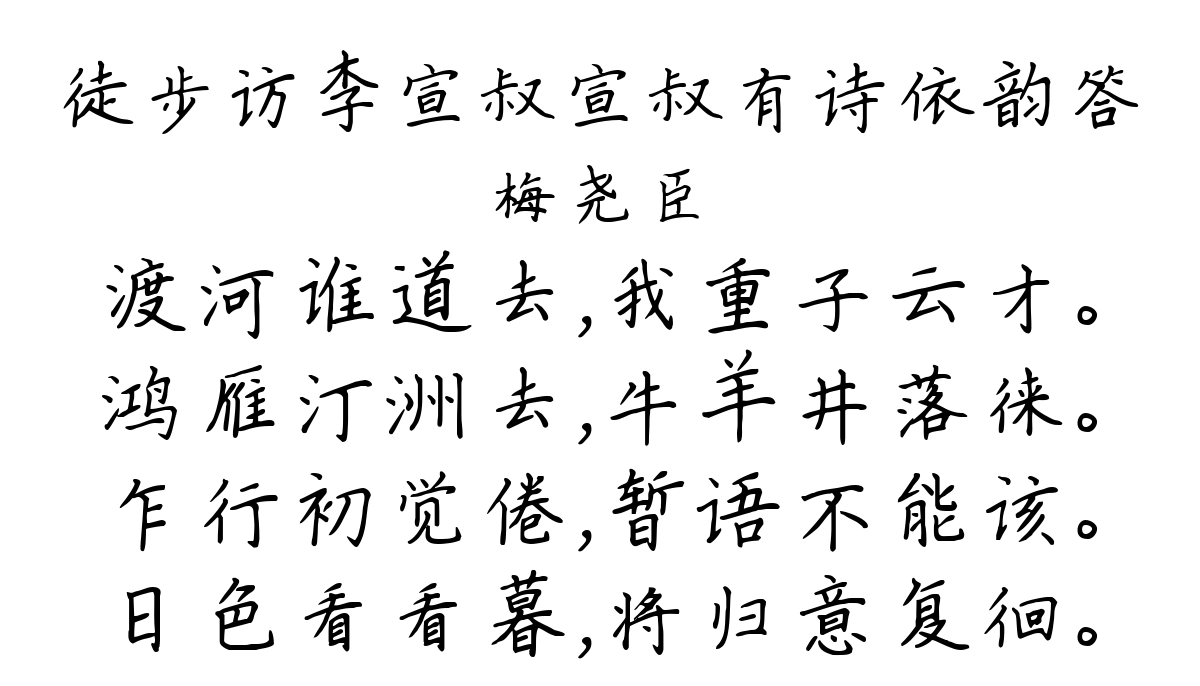 徒步访李宣叔宣叔有诗依韵答
梅尧臣
渡河谁道去,我重子云才。
鸿雁汀洲去,牛羊井落徕。
乍行初觉倦,暂语不能该。
日色看看暮,将归意复徊。